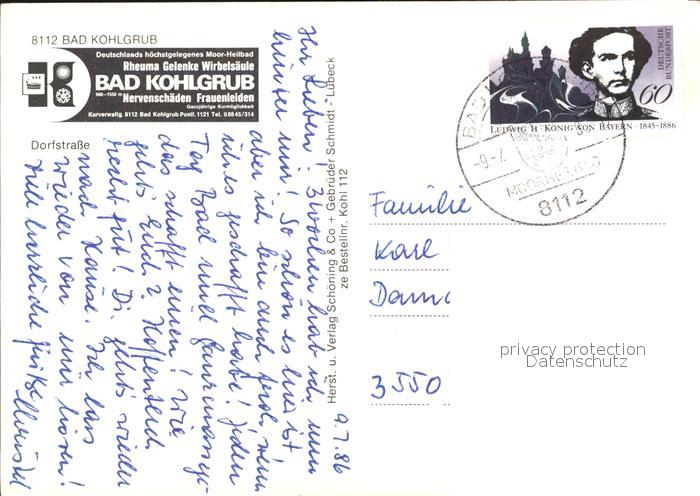 8112 BAD KOHLGRUB
Deutschlands höchstgelegenes Moor-Heilbad
Rheuma Gelenke Wirbelsäule
BAD KOHLGRUB
900-1550 m
Nervenschäden Frauenleiden
Ganzjährige Kurmöglichkeit
Kurverwaltg. 8112 Bad Kohlgrub Postf. 1121 Tel. 08845/314
Dorfstraße
9.7.86
Ihr Lieben! 3 Wochen hab ich nun
hinter mir! So schön es hier ist
aber ich bin auch froh, wenn
ich es geschafft habe! Jeden
Tag Bad und Ganzmassage
das schafft einen! Wie
gehts Euch? Hoffentlich
recht gut! Di. gehts wieder
nach Hause. Ich lass
wieder von mir hören!
Viele herzliche Grüße
Herst. u. Verlag Schöning & Co + Gebrüder Schmidt - Lübeck
ze Bestellnr. Kohl 112
DEUTSCHE
BUNDESPOST
60
LUDWIG II · KÖNIG VON BAYERN · 1845-1886
BAD
-9.-7.
MOORHEILBAD
8112
Familie
Karl
3550
privacy protection
Datenschutz